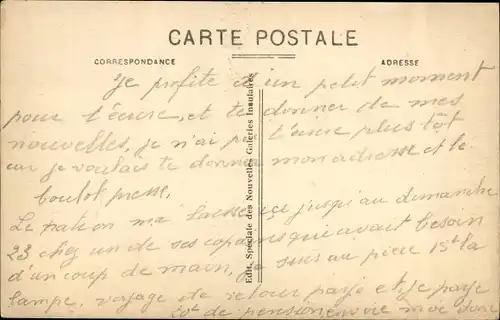 CARTE POSTALE
CORRESPONDANCE
ADRESSE
Je profite d'un petit moment
pour t'écrire, et te donner de mes
nouvelles, je n'ai pu t'écrire plus tôt
car je voulais te donner mon adresse et le
boulot presse.
Le patron me laisse ici jusqu'au dimanche
23 chez un de ses copains qui avait besoin
d'un coup de main, je suis au pièce 15t la
lampe, voyage de retour payé et je paye
20t de pension vie moi donc
Edit. Spéciale des Nouvelles Galeries Insulaires